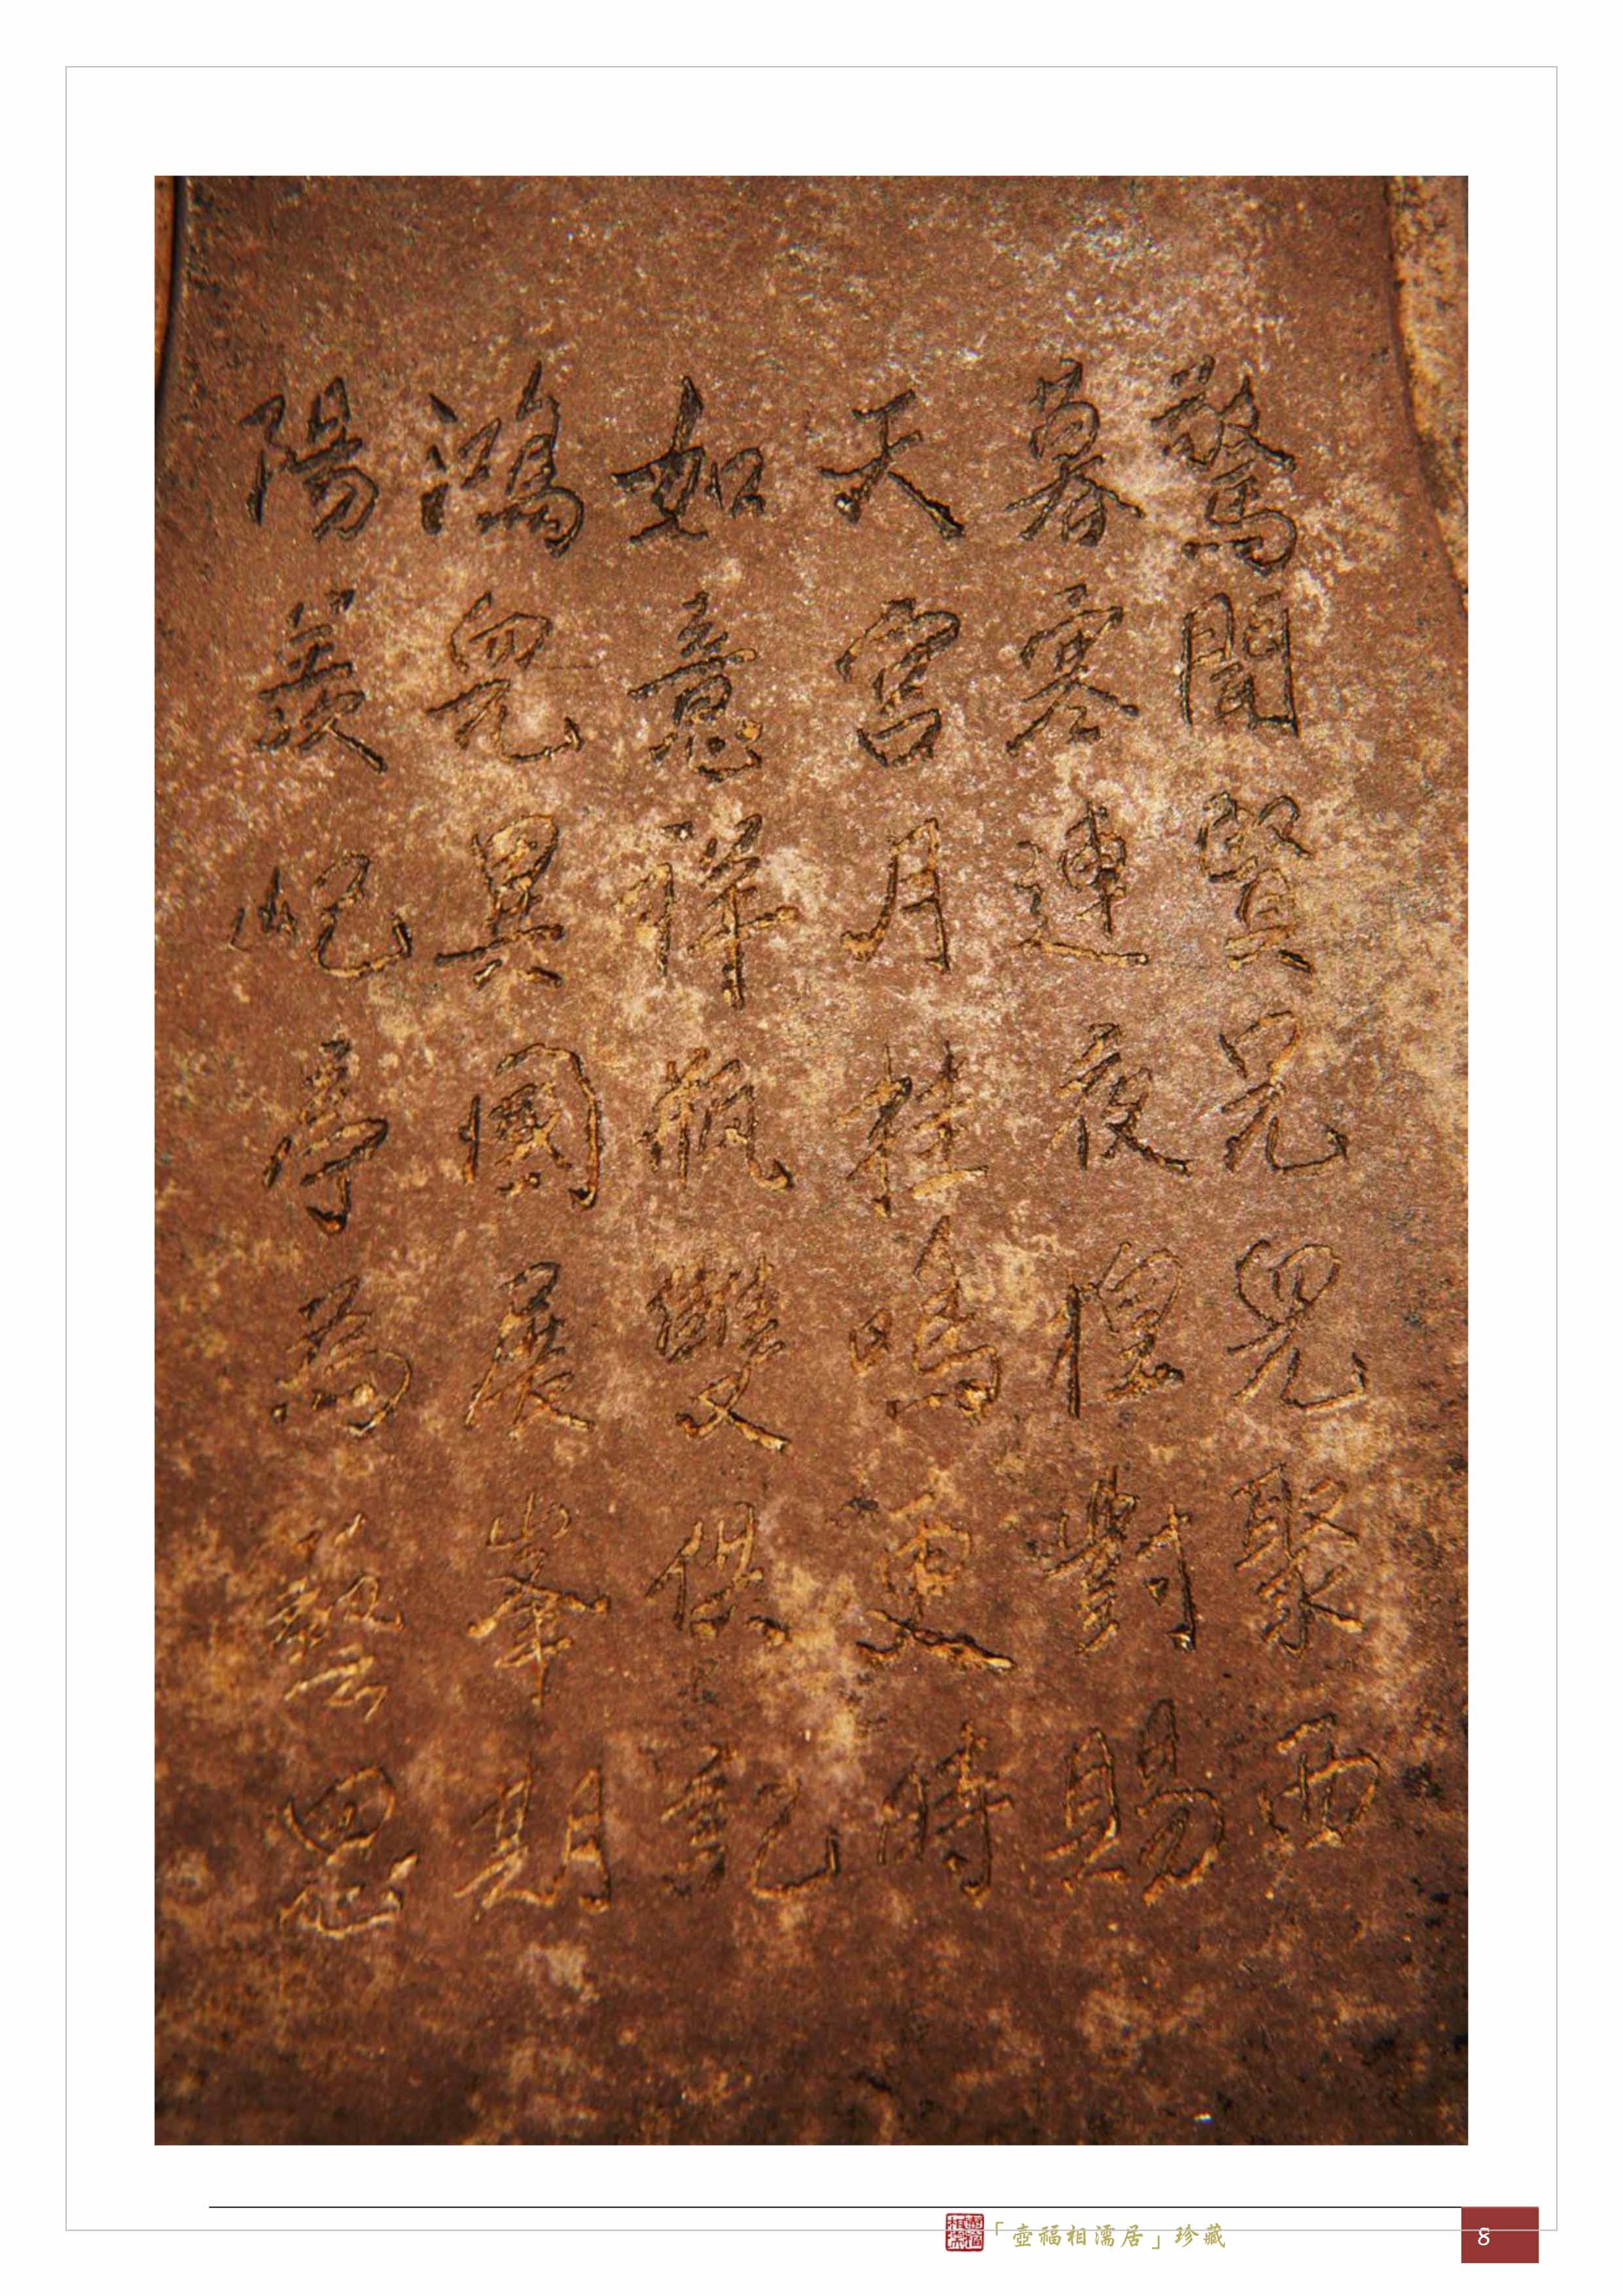 驚聞賢兄兒聚西
暮寒連夜懷對賜
天宮月桂鳴更時
如意祥瓶雙供乾
鴻兒異國展峯期
陽羨屺亭為藝思
「壺福相濡居」珍藏
8